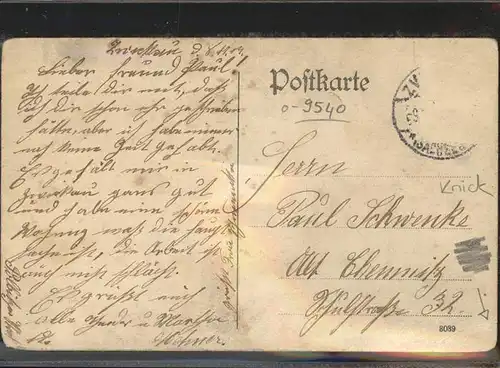 Zwickau d.
Lieber Freund Paul!
Ich teile dir mit, daß
ich dir schon eher geschrieben
hätte, aber ich habe immer
noch keine Zeit gehabt.
Es gefällt mir in
Zwickau ganz gut
und habe eine schöne
Wohnung was die Haupt
sache ist, die Arbeit ist
auch nicht schlecht.
Es grüßt euch
alle
Postkarte
o-9540
Herrn
Knick
Paul Schwenke
Alt Chemnitz
Schulstraße 32.
8089